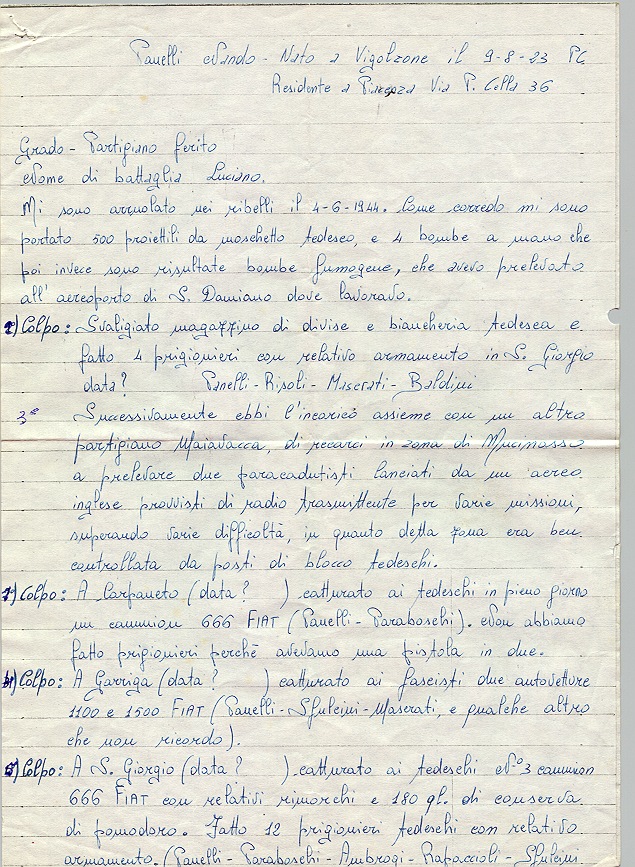 Panelli Nando - Nato a Vigolzone il 9-8-23 PC
Residente a Piacenza Via P. Cella 36
Grado - Partigiano ferito
Nome di battaglia Luciano.
Mi sono arruolato nei ribelli il 4-6-1944. Come corredo mi sono
portato 500 proiettili da moschetto tedesco, e 4 bombe a mano che
poi invece sono risultate bombe fumogene, che avevo prelevato
all'aereoporto di S. Damiano dove lavoravo.
2) Colpo: Svaligiato magazzino di divise e biancheria tedesca e
fatto 4 prigionieri con relativo armamento in S. Giorgio
data? Panelli - Risoli - Maserati - Baldini
3° Successivamente ebbi l'incarico assieme con un altro
partigiano Maiavacca, di recarci in zona di Mucinasso
a prelevare due paracadutisti lanciati da un aereo
inglese provvisti di radio trasmittente per varie missioni,
superando varie difficoltà, in quanto detta zona era ben
controllata da posti di blocco tedeschi.
1) Colpo: A Carpaneto (data? ) catturato ai tedeschi in pieno giorno
un cammion 666 FIAT (Panelli - Paraboschi). Non abbiamo
fatto prigionieri perchè avevamo una pistola in due.
4) Colpo: A Garriga (data? ) catturato ai fascisti due autovetture
1100 e 1500 FIAT (Panelli - Sfulcini - Maserati, e qualche altro
che non ricordo).
5) Colpo: A S. Giorgio (data? ) catturato ai tedeschi N.° 3 cammion
666 FIAT con relativi rimorchi e 180 ql. di conserva
di pomodoro. Fatto 12 prigionieri tedeschi con relativo
armamento. (Panelli - Paraboschi - Ambrogi - Rapaccioli - Sfulcini